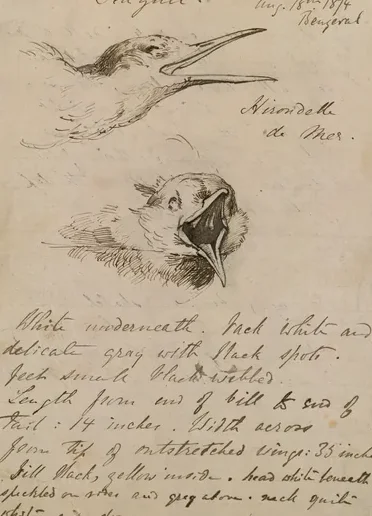 Aug. 18th 1874
Benzeval
Hirondelle
de Mer.
White underneath. back white and
delicate gray with black spots.
feet small black webbed.
Length from end of bill to end of
tail: 14 inches. Width across
from tip of outstretched wings: 35 inch
Bill black, yellow inside. head white beneath
speckled on sides and grey above. neck quite
white and